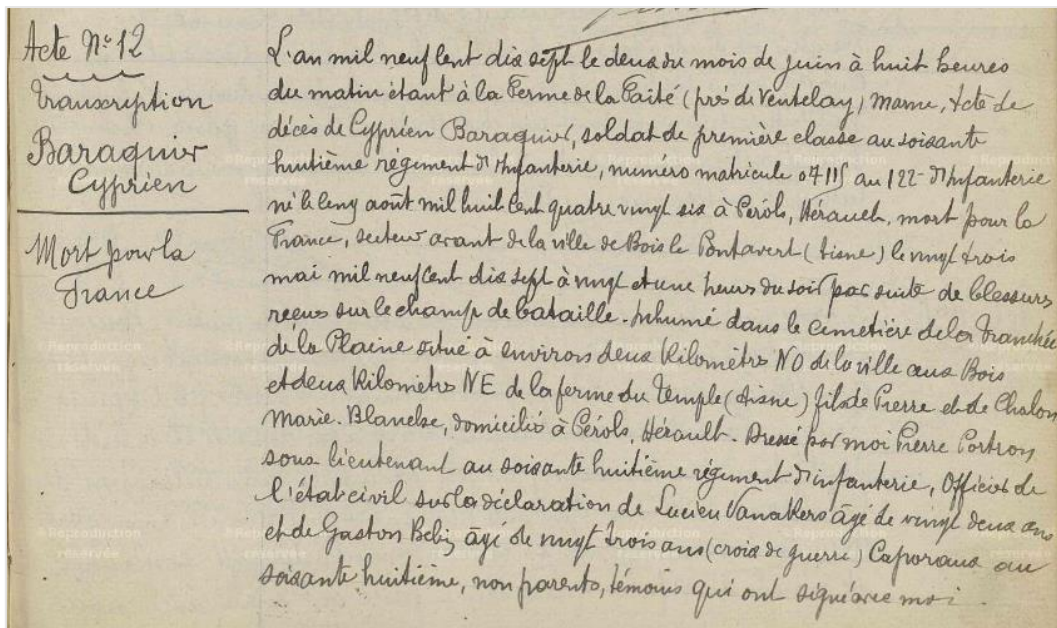 Acte N° 12
Transcription
Baraquier
Cyprien
Mort pour la
France
L'an mil neuf cent dix sept le deux du mois de juin à huit heures
du matin étant à la Ferme de la Faité (près de Ventelay) Marne, Acte de
décès de Cyprien Baraquier, soldat de première classe au soixante
huitième régiment d'Infanterie, numéro matricule 04115 au 122e d'Infanterie
né le cinq août mil huit cent quatre vingt six à Pérols, Hérault, mort pour la
France, secteur avant de la ville de Bois le Pontavert (Aisne) le vingt trois
mai mil neuf cent dix sept à vingt et une heures du soir par suite de blessures
reçues sur le champ de bataille. Inhumé dans le cimetière de la Tranchée
de la Plaine situé à environ deux kilomètres NO de la ville aux Bois
et deux kilomètres NE de la ferme du Temple (Aisne) fils de Pierre et de Chalon
Marie. Blanche, domicilié à Pérols, Hérault. Dressé par moi Pierre Portron
sous-lieutenant au soixante huitième régiment d'infanterie, Officier de
l'état civil sur la déclaration de Lucien Vanakers âgé de vingt deux ans
et de Gaston âgé de vingt trois ans (croix de guerre) Caporaux au
soixante huitième, non parents, témoins qui ont signé avec moi.
© Reproduction
réservée